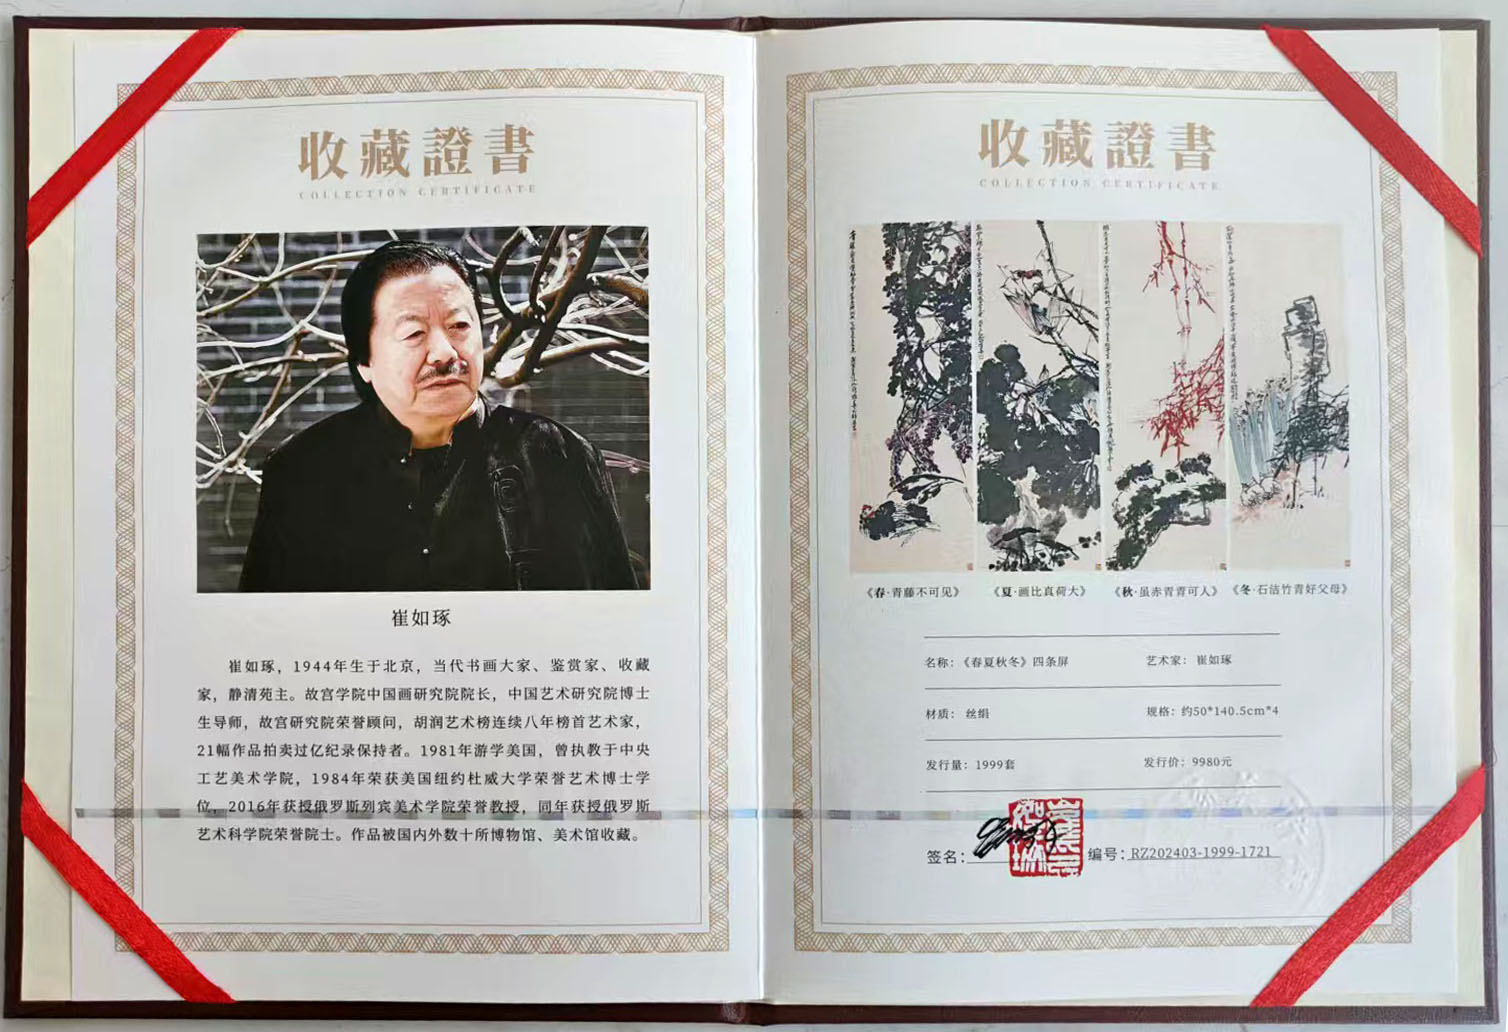 收藏證書
COLLECTION CERTIFICATE
崔如琢
崔如琢，1944年生于北京，当代书画大家、鉴赏家、收藏
家，静清苑主。故宫学院中国画研究院院长，中国艺术研究院博士
生导师，故宫研究院荣誉顾问，胡润艺术榜连续八年榜首艺术家，
21幅作品拍卖过亿纪录保持者。1981年游学美国，曾执教于中央
工艺美术学院，1984年荣获美国纽约杜威大学荣誉艺术博士学
位，2016年获授俄罗斯列宾美术学院荣誉教授，同年获授俄罗斯
艺术科学院荣誉院士。作品被国内外数十所博物馆、美术馆收藏。
收藏證書
COLLECTION CERTIFICATE
《春·青藤不可见》 《夏·画比真荷大》 《秋·虽赤青青可人》 《冬·石洁竹青好父母》
名称：《春夏秋冬》四条屏 艺术家：崔如琢
材质：丝绢 规格：约50*140.5cm*4
发行量：1999套 发行价：9980元
签名： 编号：RZ202403-1999-1721